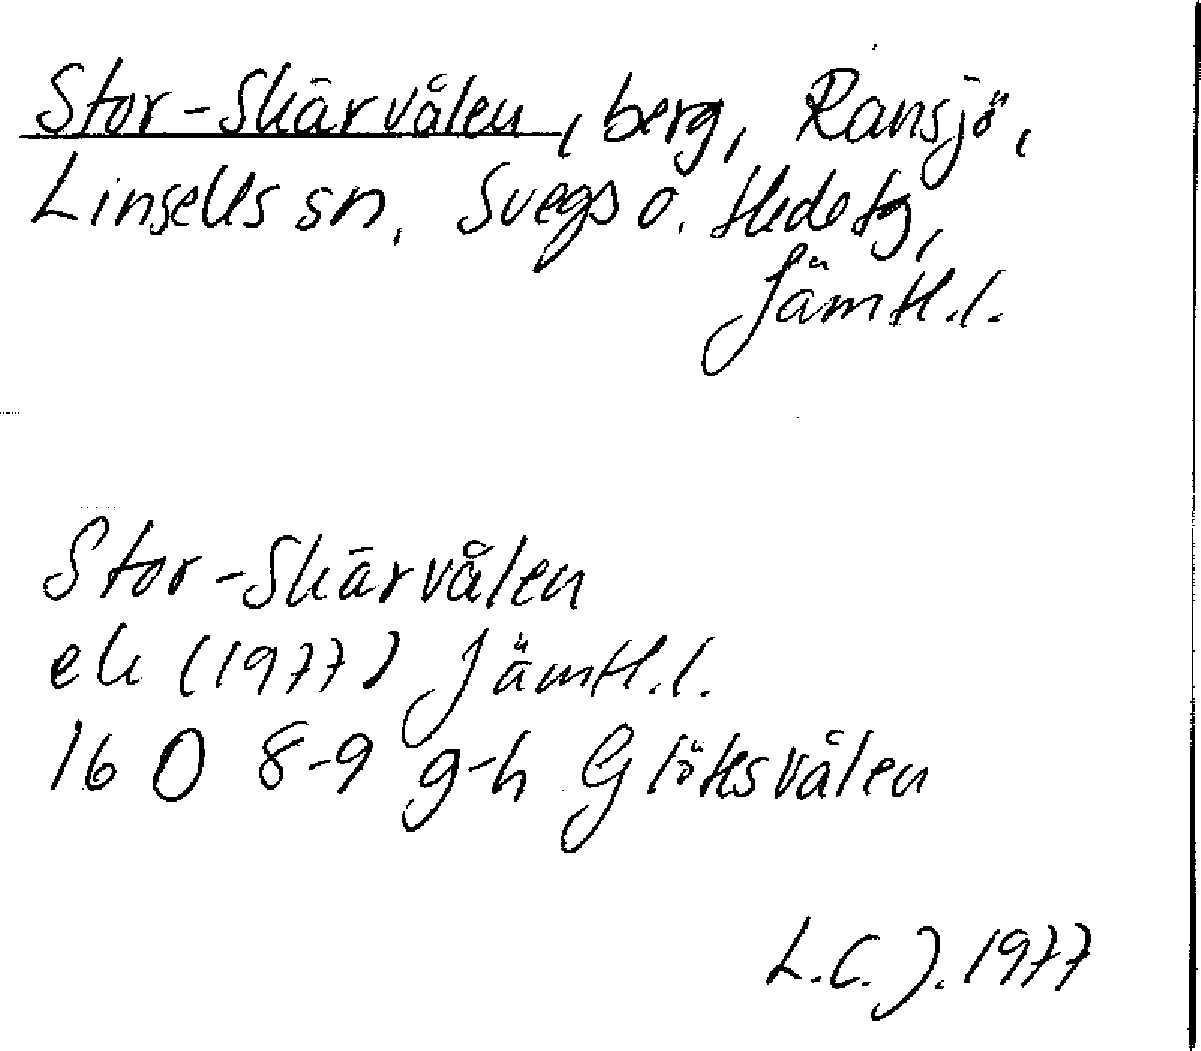 Stor-Skärvålen, berg, Ransjö,
Linsells sn. Svegs o. Hede tg,
Jämtl.l.
Stor-Skärvålen
ek (1977) Jämtl.l.
16 D 8-9 g-h Glötesvålen
L.C.J. 1977